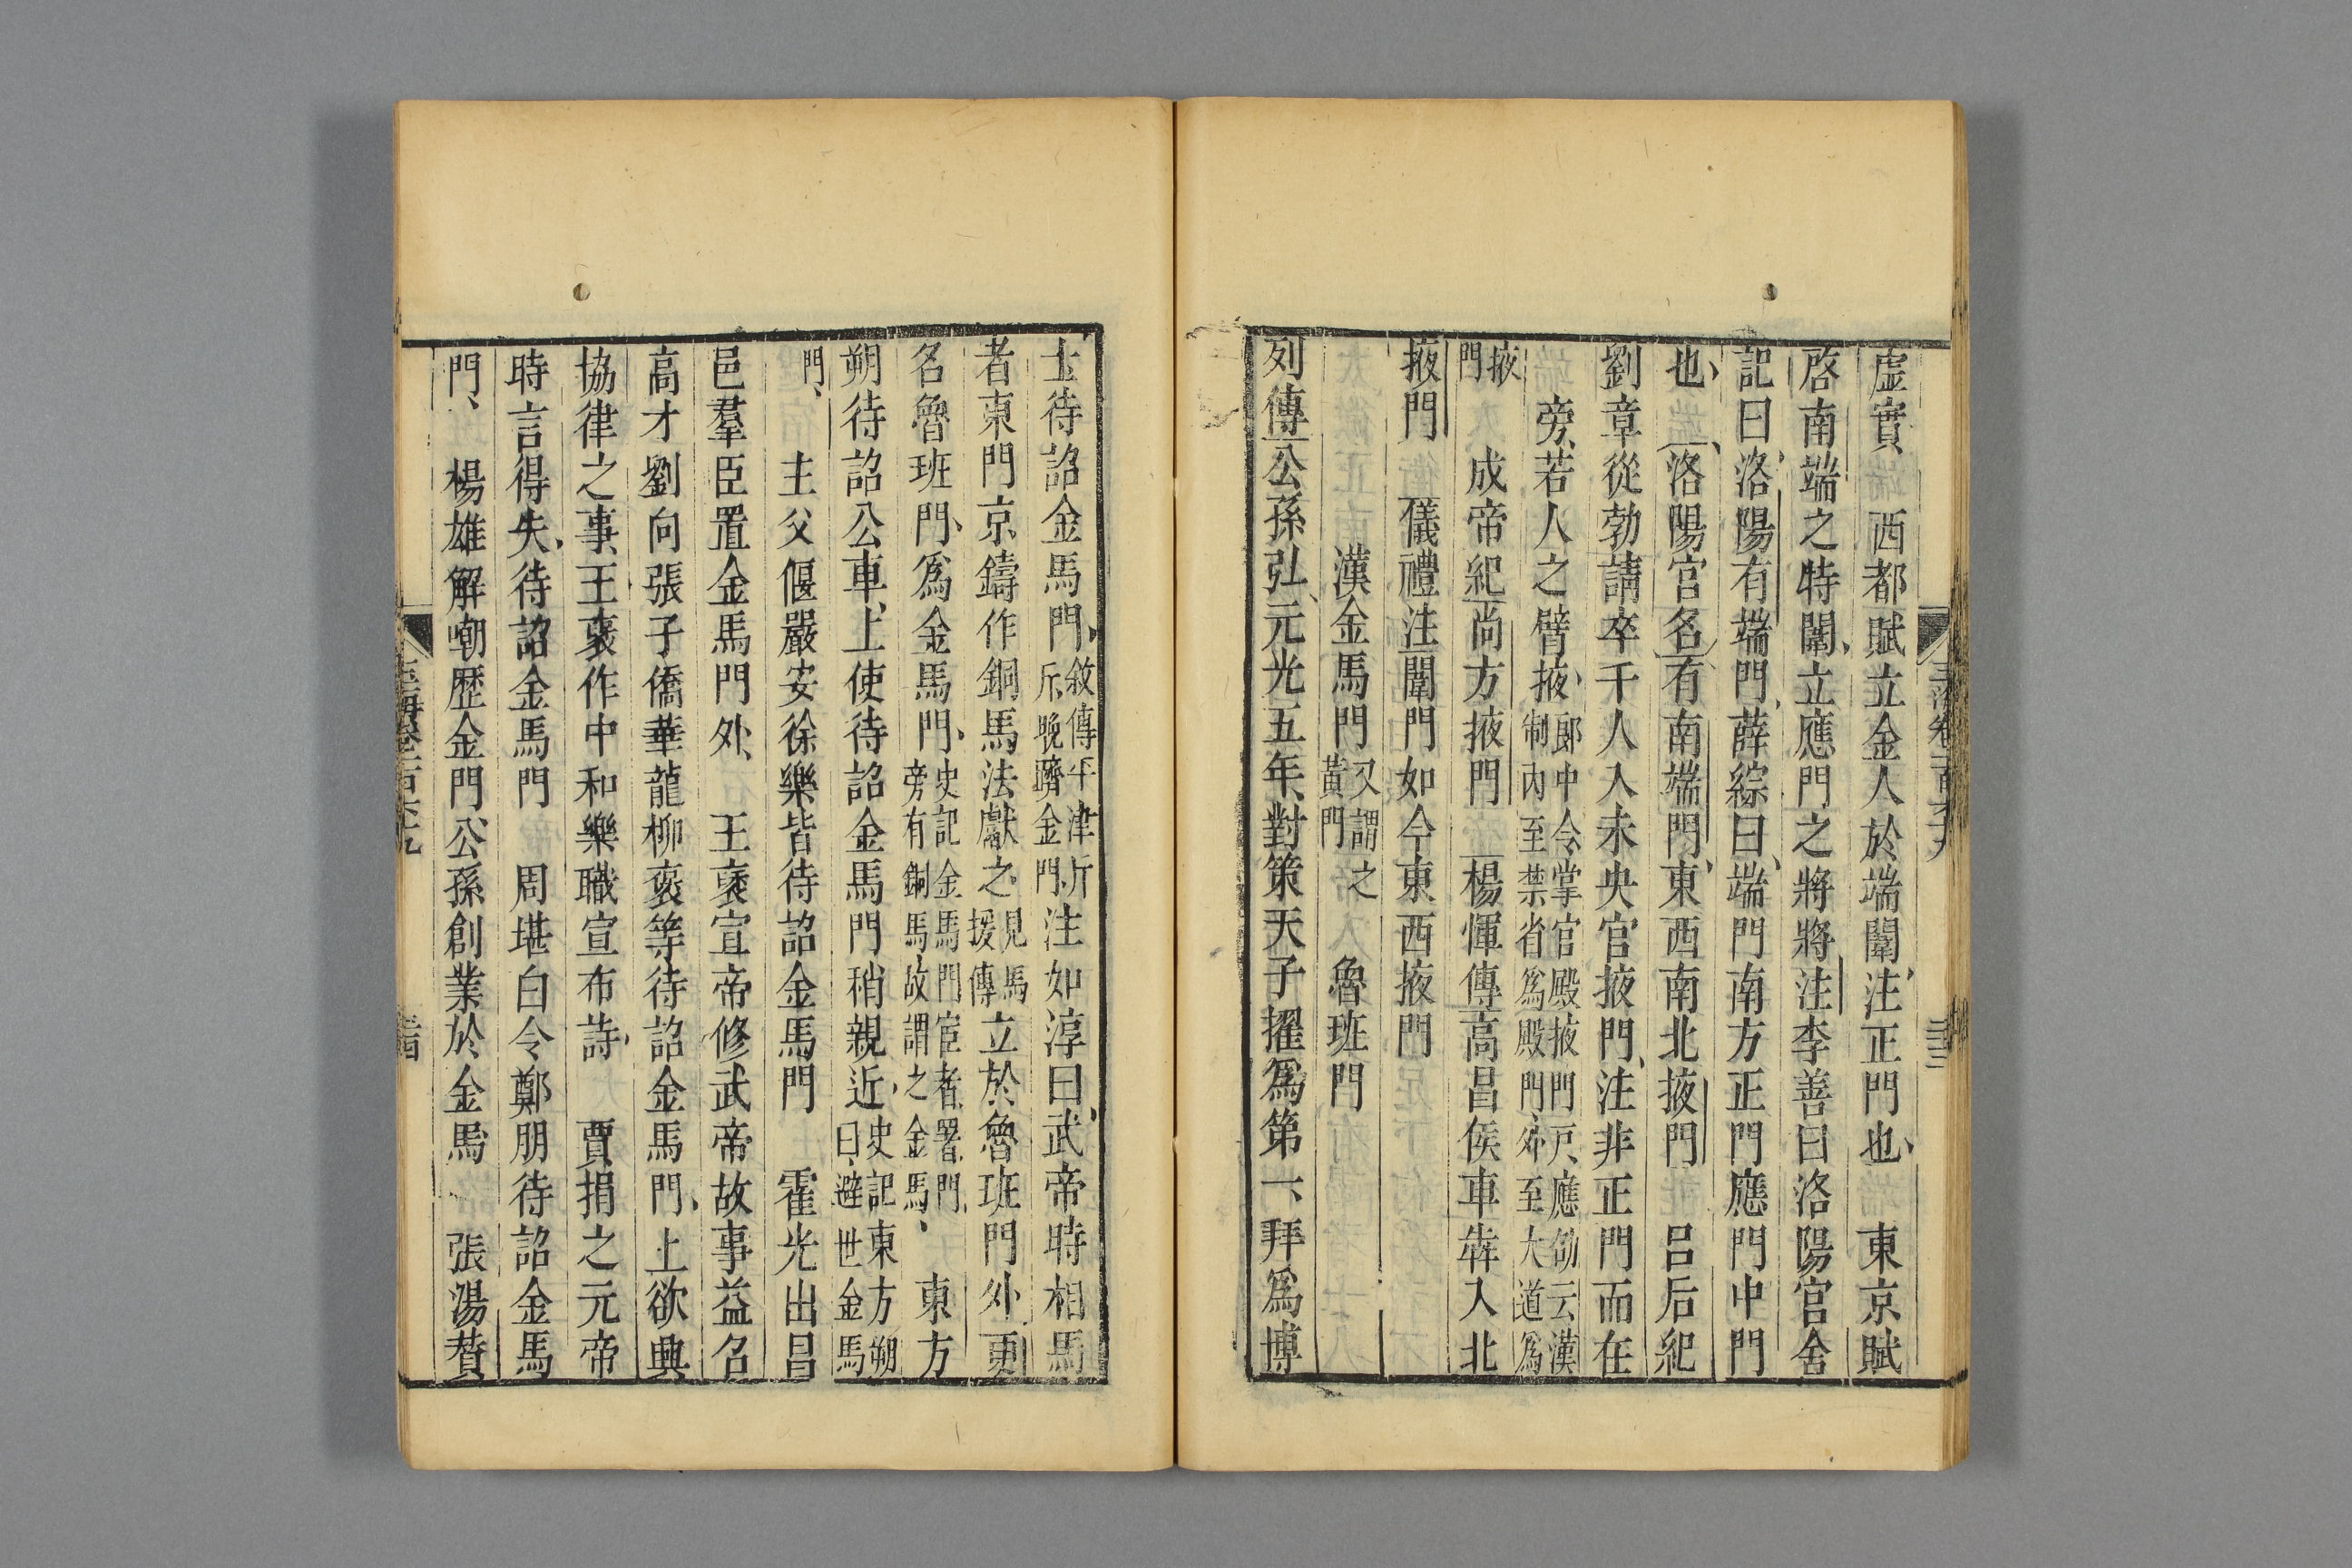 虛實　西都賦立金人於端闈注正門也　東京賦
啓南端之特闈立應門之將將注李善曰洛陽宮舍
記曰洛陽有端門薛綜曰端門南方正門應門中門
也洛陽宮名有南端門東西南北掖門　呂后紀
劉章從勃請卒千人入未央宮掖門注非正門而在
旁若人之臂掖郎中令掌官殿掖門戸應劭云漢
制內至禁省爲殿門外至大道爲
掖
門　成帝紀尚方掖門　楊惲傳高昌侯車犇入北
掖門　儀禮注闈門如今東西掖門
漢金馬門又謂之
黃門　魯班門
列傳公孫弘元光五年對策天子擢爲第一拜爲博
士待詔金馬門敘傳平津斤
斤晚躋金門注如淳曰武帝時相馬
者東門京鑄作銅馬法獻之見馬
援傳立於魯班門外更
名魯班門爲金馬門史記金馬門宦者署門
旁有銅馬故謂之金馬　東方
朔待詔公車上使待詔金馬門稍親近史記東方朔
曰避世金馬
門　主父偃嚴安徐樂皆待詔金馬門　霍光出昌
邑羣臣置金馬門外　王褒宣帝修武帝故事益召
高才劉向張子僑華龍柳褒等待詔金馬門上欲興
協律之事王褒作中和樂職宣布詩　賈捐之元帝
時言得失待詔金馬門　周堪白令鄭朋待詔金馬
門　楊雄解嘲歷金門公孫創業於金馬　張湯贊